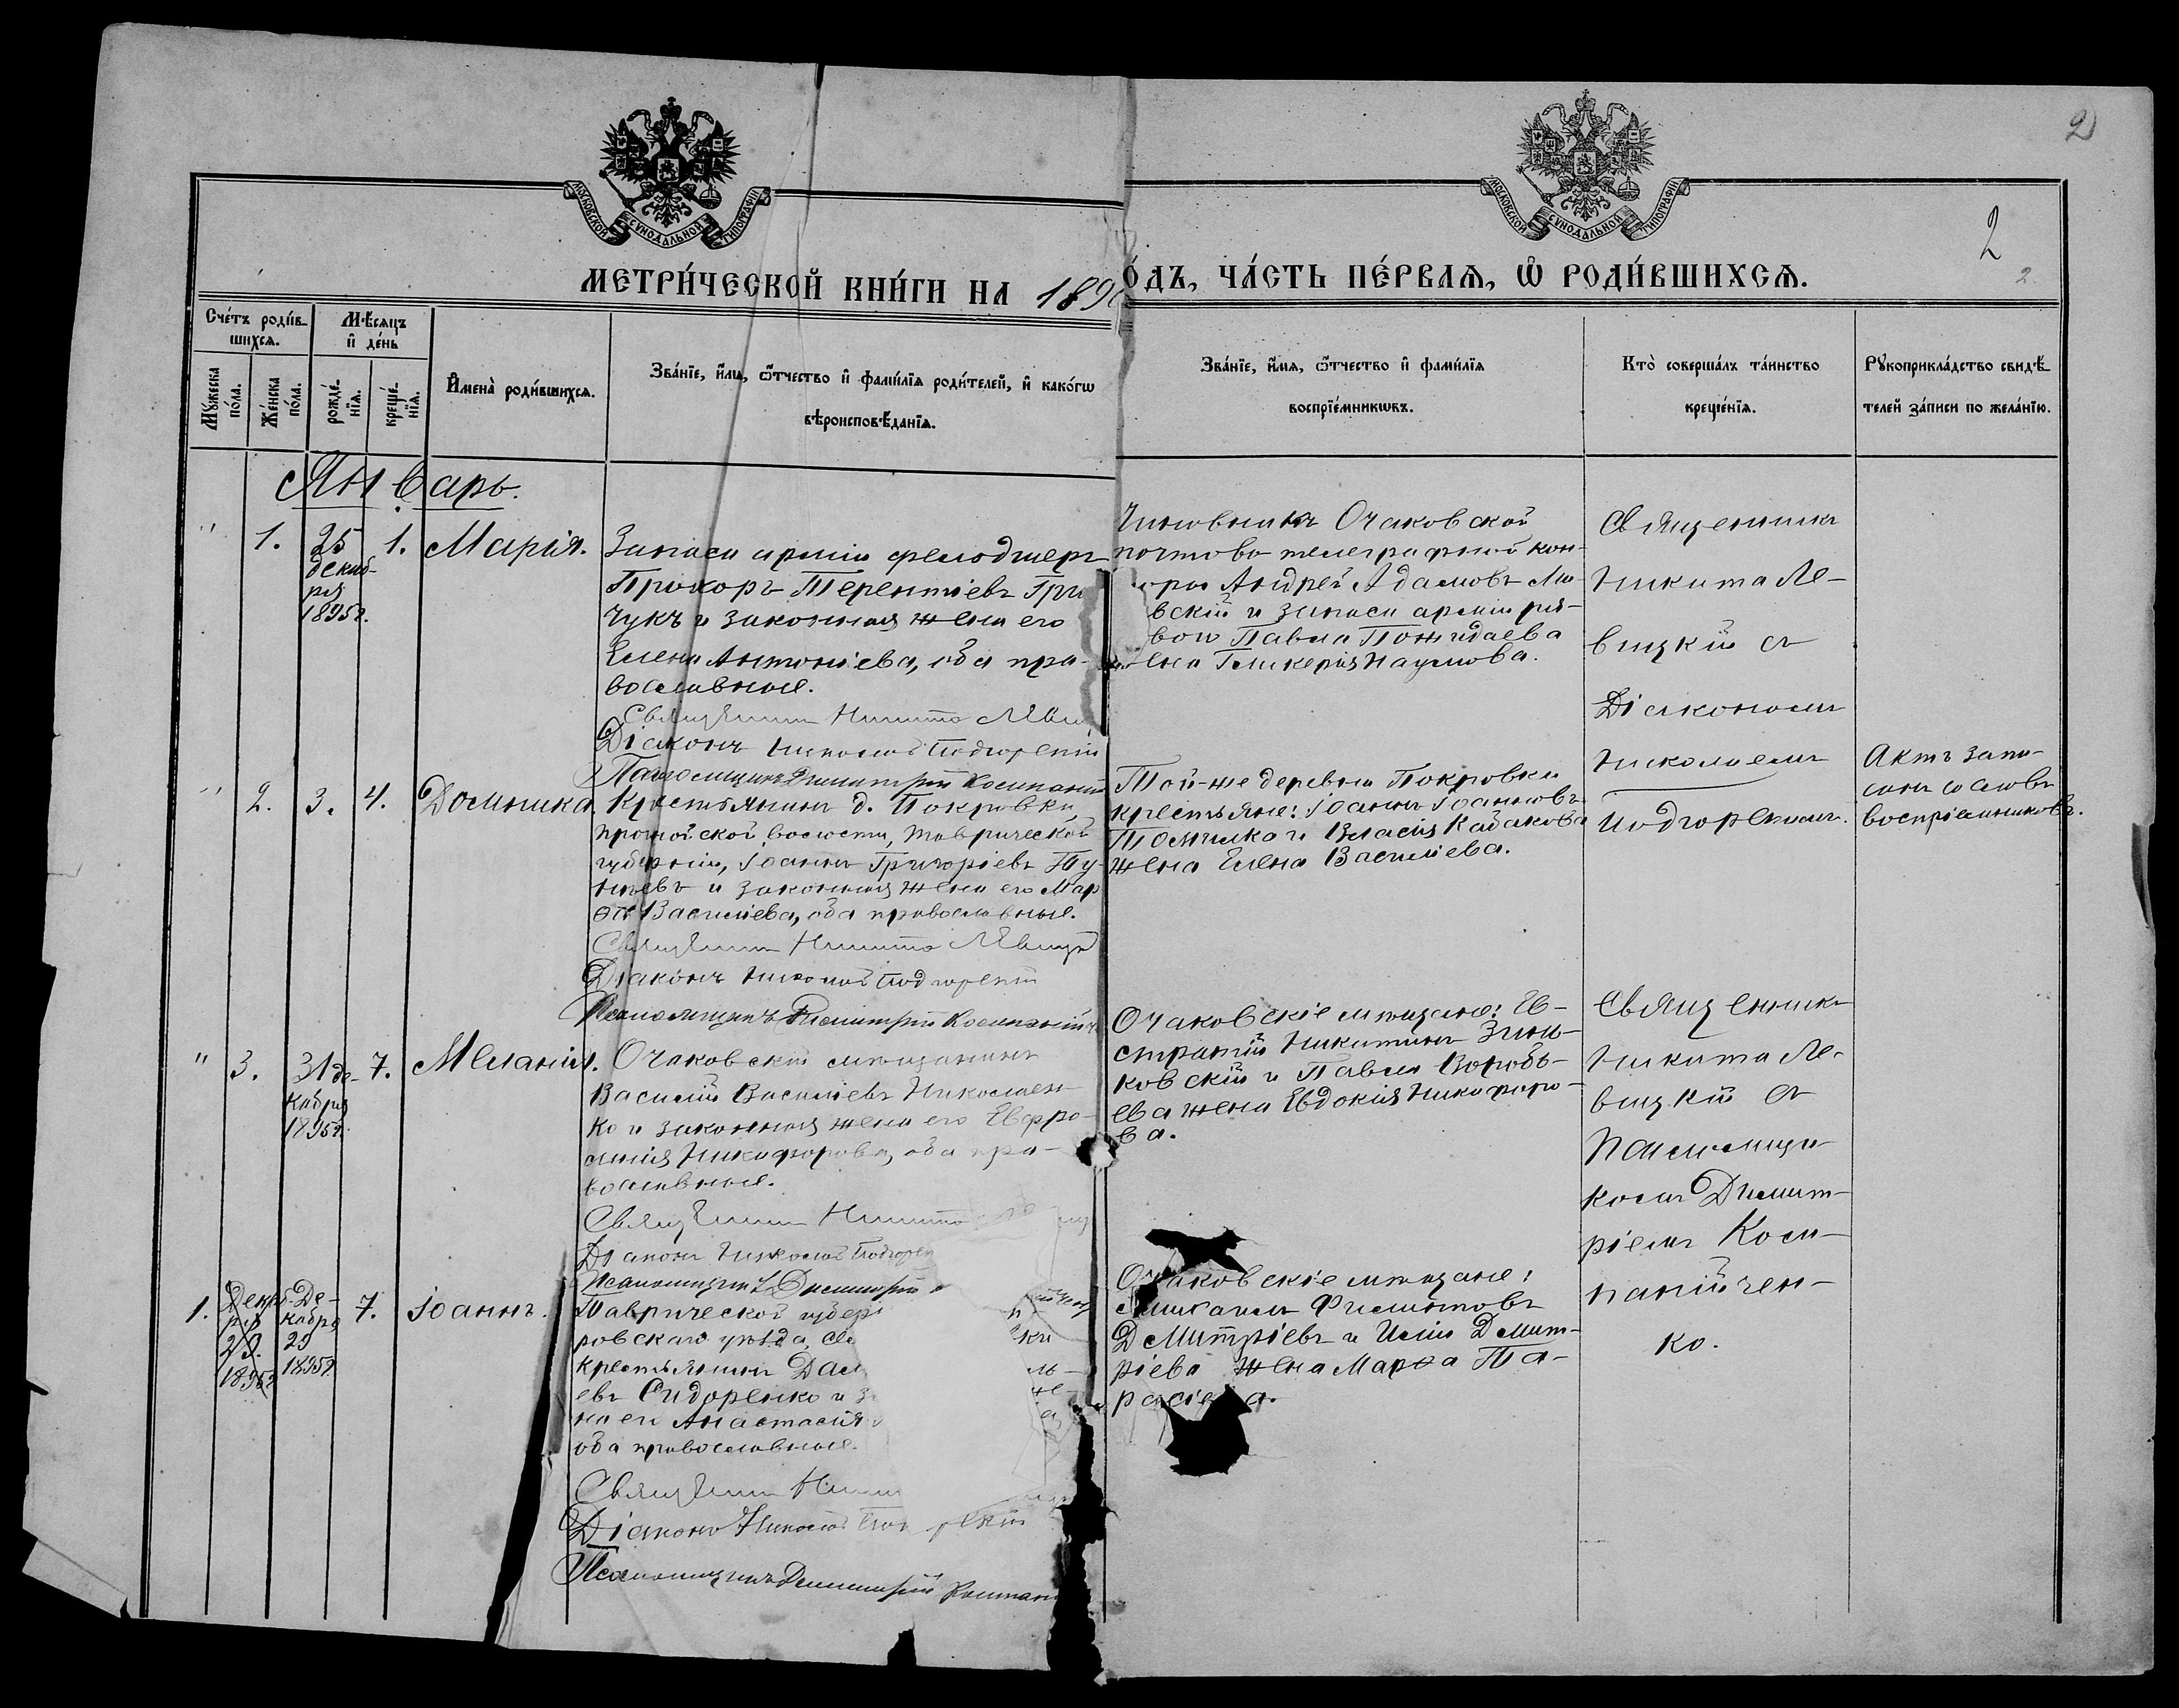 2
МОСКОВСКОЙ СУНОДАЛЬНОЙ ТИПОГРАФІИ
МОСКОВСКОЙ СУНОДАЛЬНОЙ ТИПОГРАФІИ
2
2
МЕТРИ́ЧЕСКОЙ КНИ́ГИ НА 189
О́ДЪ, ЧА́СТЬ ПЕ́РВАѦ, Ѡ҆ РОДИ́ВШИХСѦ.
Сче́тъ роди́в-
шихсѧ.
Мѣ́сѧцъ
и҆ де́нь
Мꙋ́жеска
по́ла.
Же́нска
по́ла.
рожде́-
нїѧ.
креще́-
нїѧ.
И҆мена̀ роди́вшихсѧ.
Зва́нїе, и҆́мѧ, ѻ҆́тчество и҆ фами́лїѧ роди́телей, и҆ како́гѡ
вѣроисповѣ́данїѧ.
Зва́нїе, и҆́мѧ, ѻ҆́тчество и҆ фами́лїѧ
воспрїе́мникѡвъ.
Кто̀ соверша́лъ та́инство
креще́нїѧ.
Рꙋкоприкла́дство свидѣ́-
телей за́писи по жела́нїю.
Январь.
" 1. 25 декаб-
ря
1895г.
1. Марія.
Запаса арміи фельдшеръ
Прохоръ Терентіевъ Гри
чукъ и законная жена его
Елена Антоніева, оба пра-
вославные.
Священникъ Никита Леви
Діаконъ Николай Подгорскій
Псаломщикъ Димитрій Компаній
Чиновникъ Очаковской
почтово телеграфной кон-
торы Андрей Адамовъ
вскій и запаса арміи ря-
вого Павла Пожидаева
жена Гликерія Наумова.
Священникъ
Никита Ле-
вицкій съ
Діакономъ
Николаемъ
Подгорскимъ.
" 2. 3. 4. Домника.
Крестьянинъ д. Покровки
волости, Таврической
губерніи, Іоаннъ Григоріевъ
и законная жена его Мар
ѳа Василіева, оба православные.
Священникъ Никита Левицк
Діаконъ Николай Подгорскій
Псаломщикъ Димитрій Компаній
Той-же деревни Покровки
крестьяне: Іоаннъ Іоанновъ
и Власія Кабакова
жена Елена Василіева.
Актъ запи-
санъ со словъ
воспріемниковъ.
" 3. 31 де-
кабря
1895г.
7. Меланія.
Очаковскій мѣщанинъ
Василій Василіевъ Николаен-
ко и законная жена его Евфро-
синія Никифорова, оба пра-
вославные.
Священникъ Никита
Діаконъ Николай Подгорс
Псаломщикъ Димитрій
Очаковскіе мѣщане: Ев-
стратій Никитинъ Зинь-
ковскій и Павла Воробь-
ева жена Евдокія Никифоро-
ва.
Священникъ
Никита Ле-
вицкій съ
Псаломщи-
комъ Димит-
ріемъ Ком-
панійчен-
ко.
1. Декаб
ря
29.
1895г.
Де-
кабря
29
1895г.
7. Іоаннъ.
Таврической губер
ровскаго уѣзда, се
крестьянинъ Дам
евъ Сидоренко и з
на его Анастасія
оба православные.
Священникъ Ники
Діаконъ Николай Под рскій
Псаломщикъ Димитрій Компани
Очаковскіе мѣщане:
Михаилъ Филиповъ
Дмитріевъ и Иліи Дмит-
ріева жена Марѳа Та-
расіева.